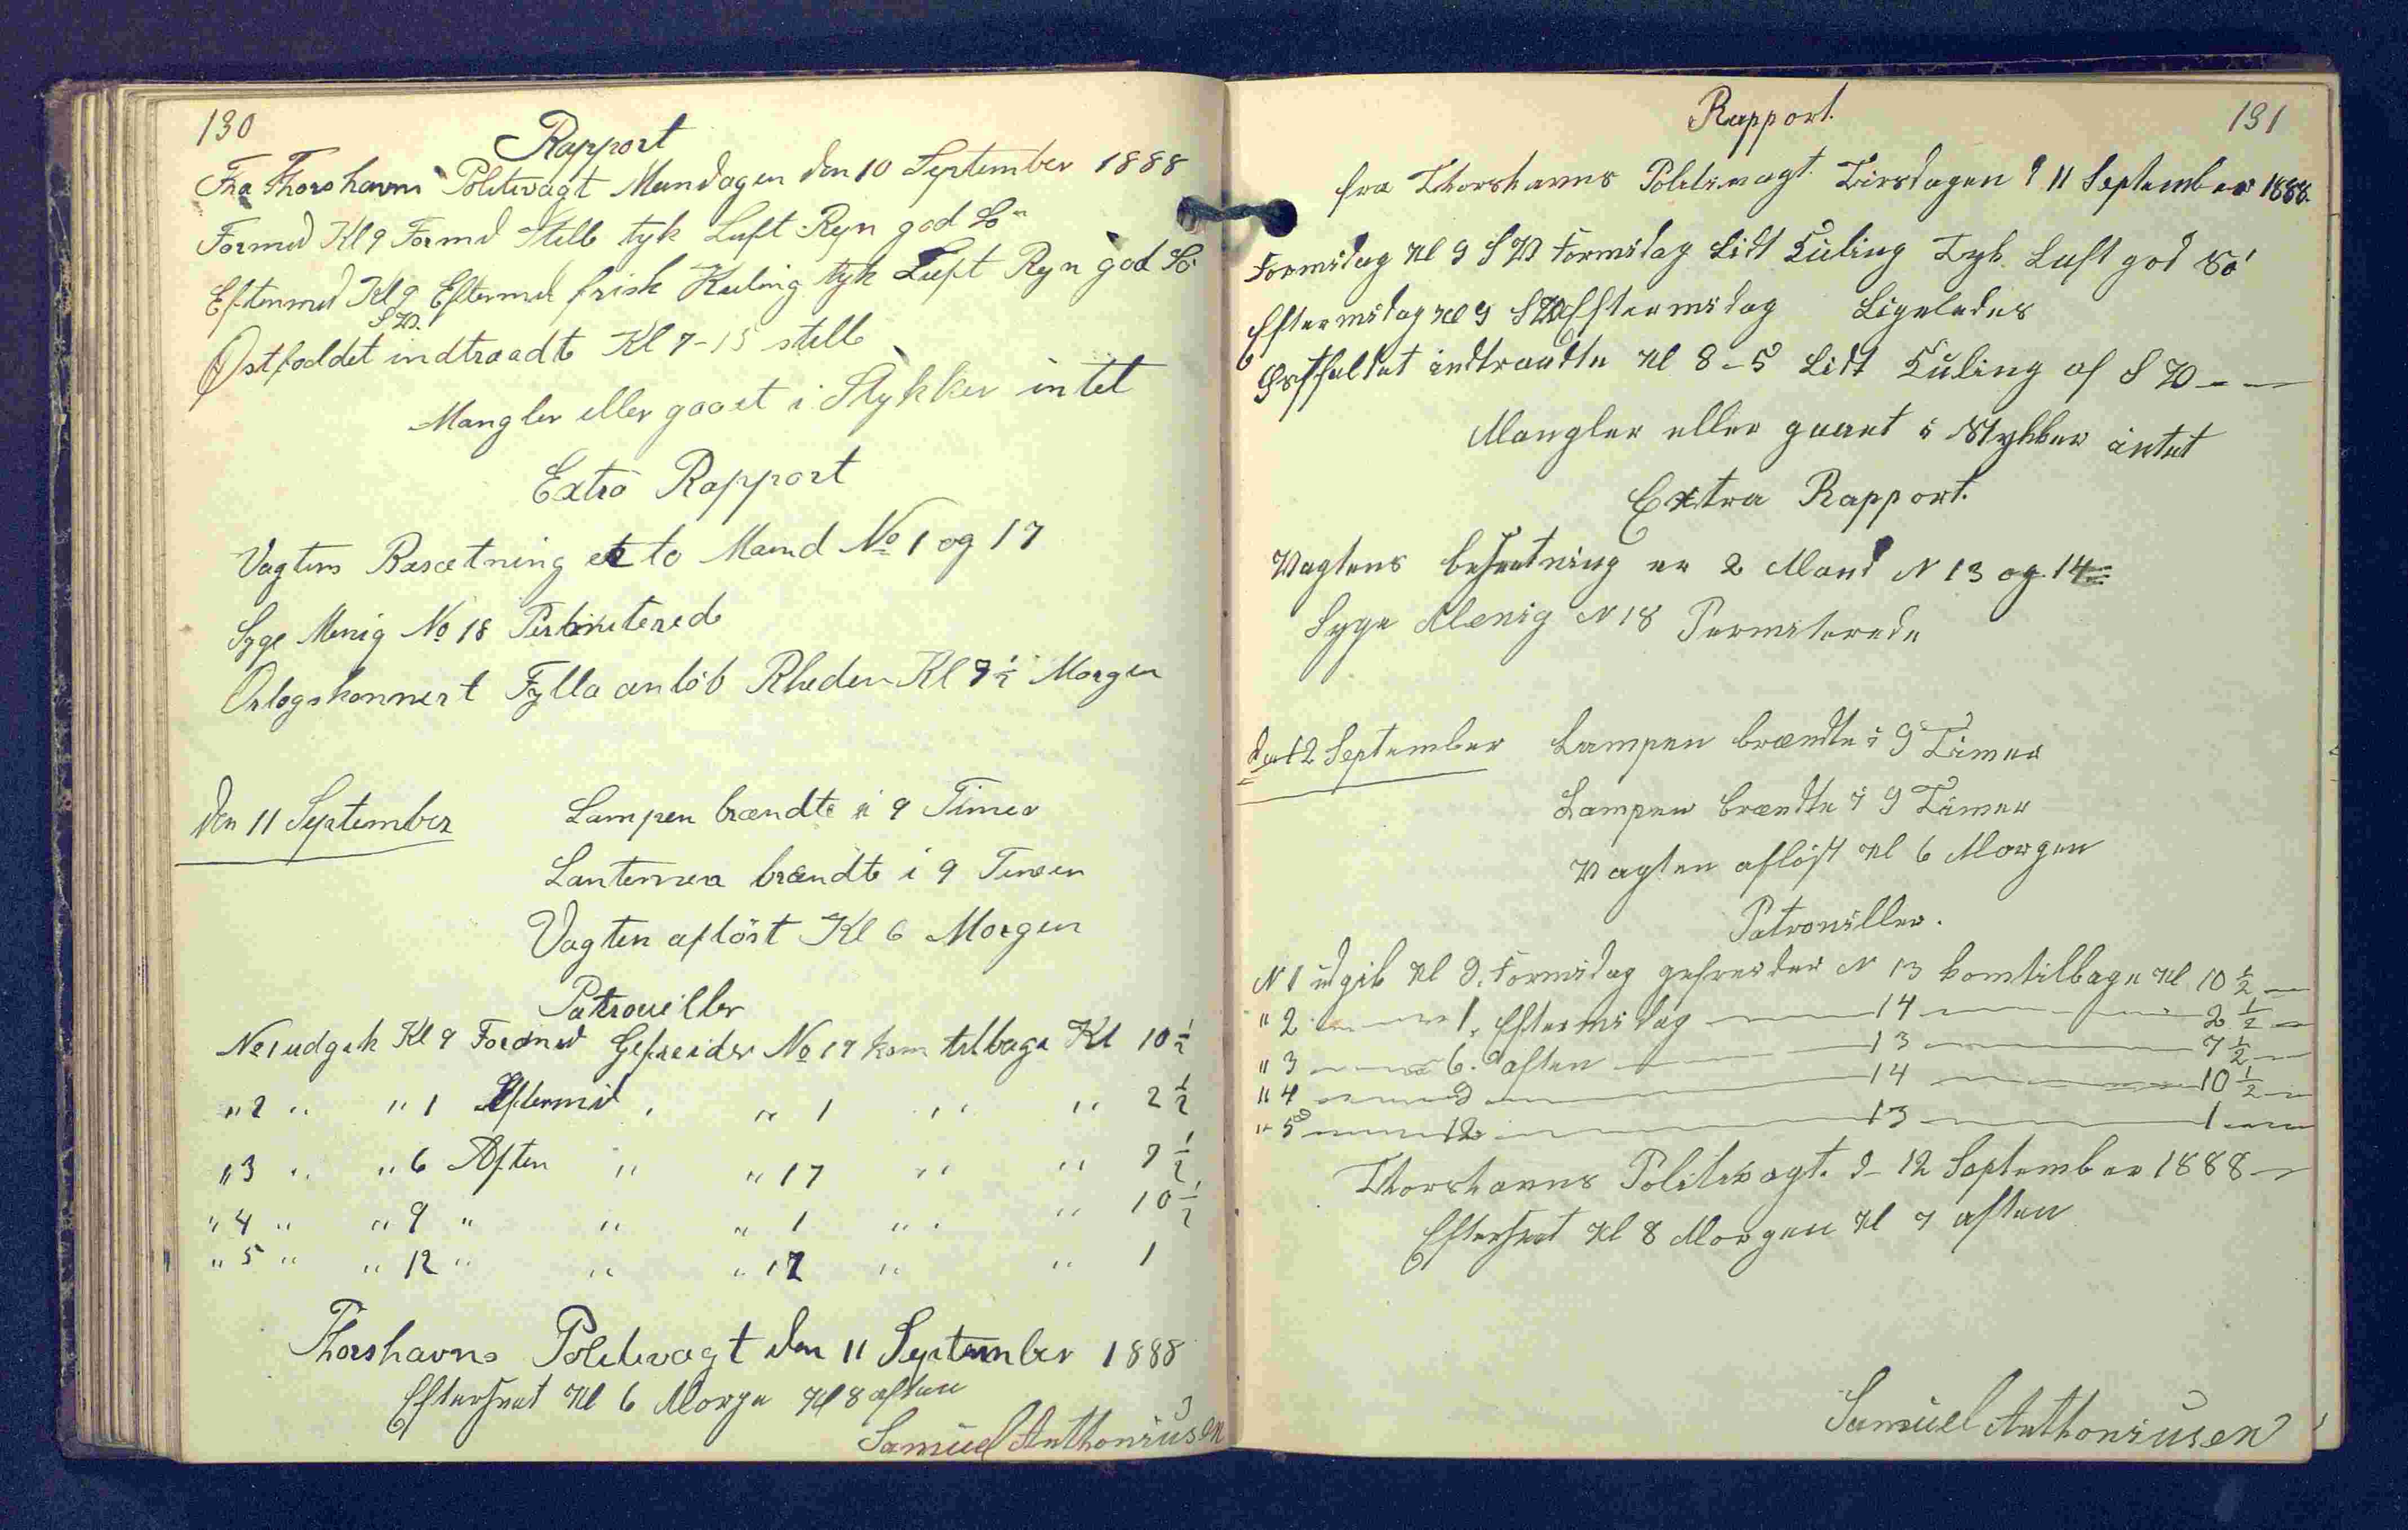 130
Rapport
Fra Thorshavns Politivagt Mandagen den 10 September 1888
Formd Kl 9 Formd Stille tyk Luft Ryn god Sö
Eftermd Kl 9 Eftermd frisk Kuling tyk Luft Ryn god Sö
SW.
Østfaldet indtraadte Kl 7-15 stille
Mangler eller gaaet i Stykker intet
Extra Rapport
Vagtens Besætning er to Mand No 1 og 17
Syge Menig No 18
Orlogskonnert Fylla anlöb Rheden Kl 7½ Morgen
Den 11 September Lampen brændte i 9 Timer
Lanternen brændte i 9 Timer
Vagten aflöst Kl 6 Morgen
Patrouiller
No 1 udgik Kl 9 Formd Gefreider No 17 kom tilbage Kl 10½
" 2 " " 1 Eftermid " " 1 " " 2½
" 3 " " 6 Aften " " 17 " " 7½
" 4 " " 9 " " " 1 " " 10½
" 5 " " 12 " " " 17 " " 1
Thorshavns Politivagt den 11 September 1888
Efterseet Kl 6 Morge Kl 8 aften
Samuel Anthoniusen
131
Rapport.
fra Thorshavns Politivagt. Tirsdagen d 11 September 1888.
Formidag Kl 9 SW Formidag Lidt Kuling Tyk Luft god Sö
Eftermidag Kl 9 SW Eftermidag Ligeledes
Østfaldet indtraadte Kl 8-5 Lidt Kuling af SW - -
Mangler eller gaaet i Stykker intet
Extra Rapport.
Vagtens besætning er 2 Mand N 13 og 14
Syge Menig N 18 Permiterede
den 12 September Lampen brændte i 9 Timer
Lampen brændte i 9 Timer
Vagten aflöst Kl 6 Morgen
Patrouiller.
N 1 udgik Kl 9. Formidag gefreider N 13 kom tilbage Kl 10½ —
" 2 — 1. Eftermidag — 14 — 2½ —
" 3 — 6. aften — 13 — 7½ —
" 4 — 9 — 14 — 10½ —
" 5 — 12 — 13 — 1 —
Thorshavns Politivagt. d- 12 September 1888 -
Efterseet Kl 8 Morgen Kl 7 aften
Samuel Anthoniusen